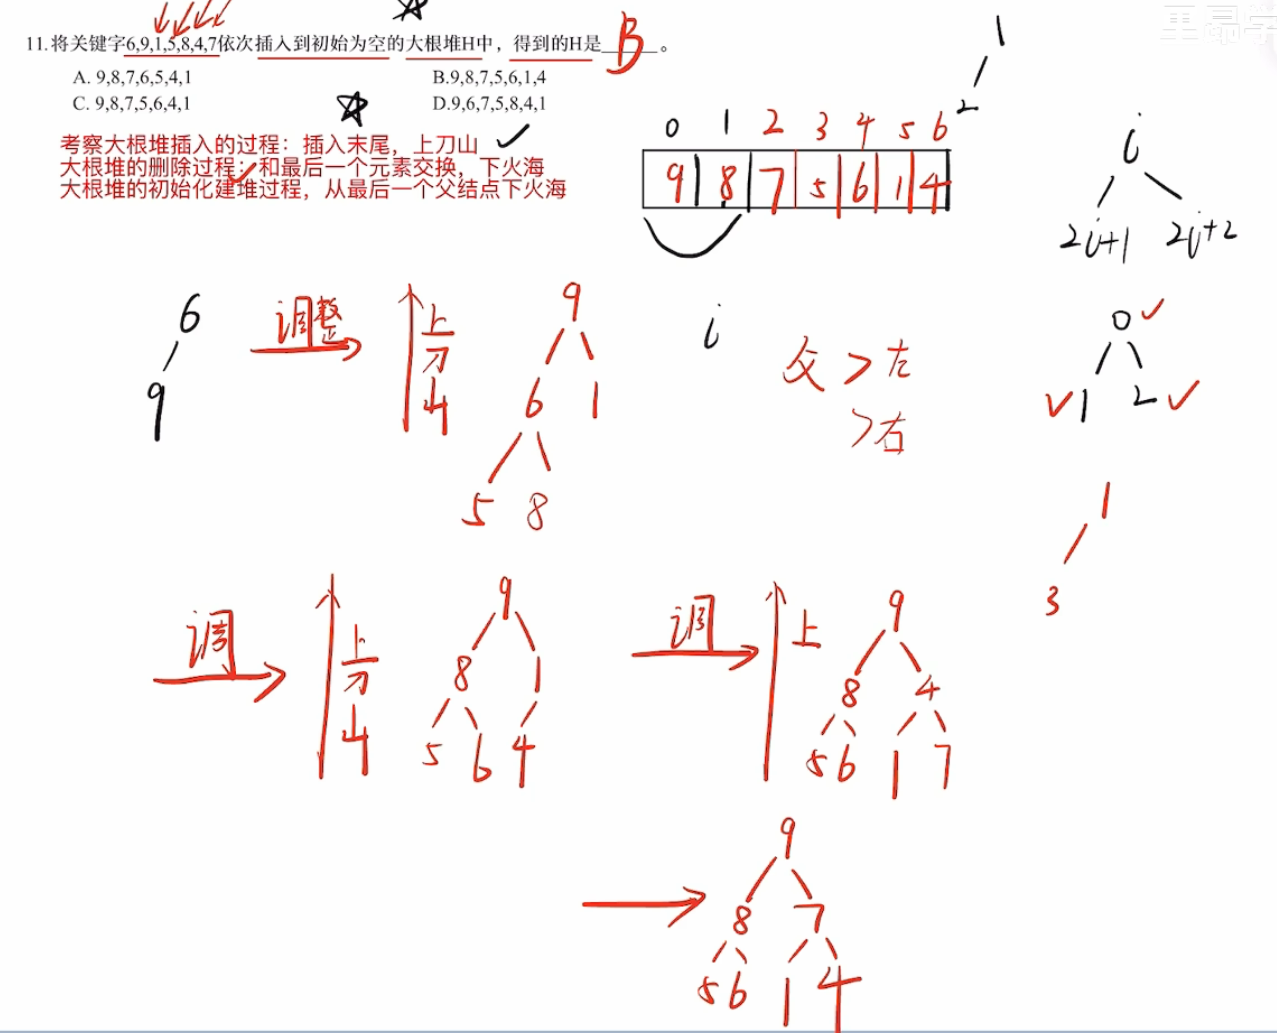 11.将关键字6,9,1,5,8,4,7依次插入到初始为空的大根堆H中，得到的H是 B 。
A. 9,8,7,6,5,4,1
B.9,8,7,5,6,1,4
C. 9,8,7,5,6,4,1
D.9,6,7,5,8,4,1
考察大根堆插入的过程：插入末尾，上刀山
大根堆的删除过程：和最后一个元素交换，下火海
大根堆的初始化建堆过程，从最后一个父结点下火海
1
2
0 1 2 3 4 5 6
9 8 7 5 6 1 4
i
2i+1 2i+2
6
9
调整
上刀山
9
6 1
5 8
i
父 > 左
> 右
0
1 2
1
3
调
上刀山
9
8 1
5 6 4
调
上
9
8 4
5 6 1 7
9
8 7
5 6 1 4